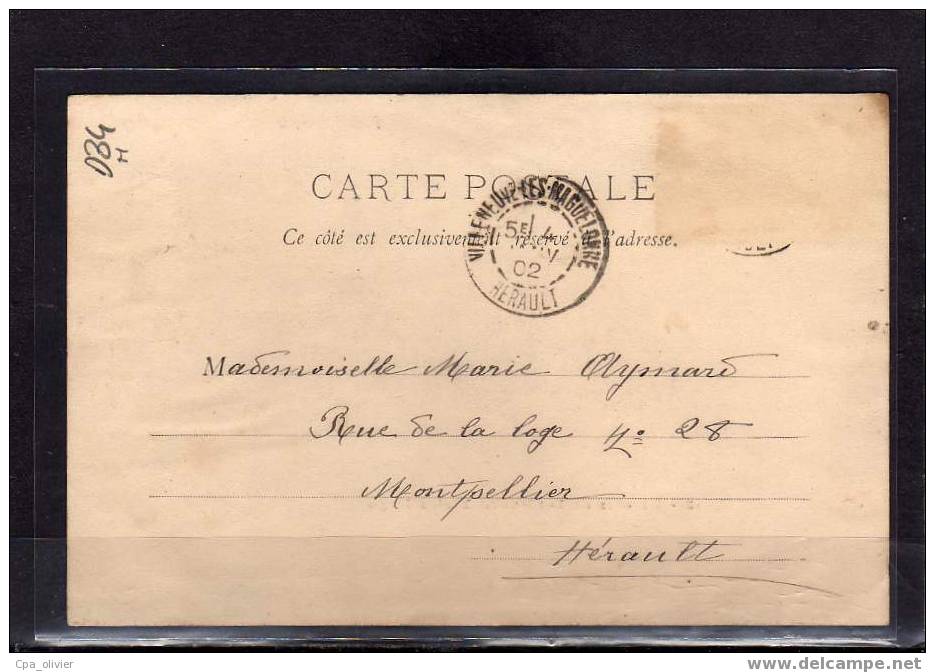 D34
H
CARTE POSTALE
Ce côté est exclusivement réservé à l'adresse.
VILLENEUVE-LES-MAGUELONNE
5E 4
02
HÉRAULT
Mademoiselle Marie Aymard
Rue de la loge No 28
Montpellier
Hérault
Cpa_olivier
www.delcampe.net